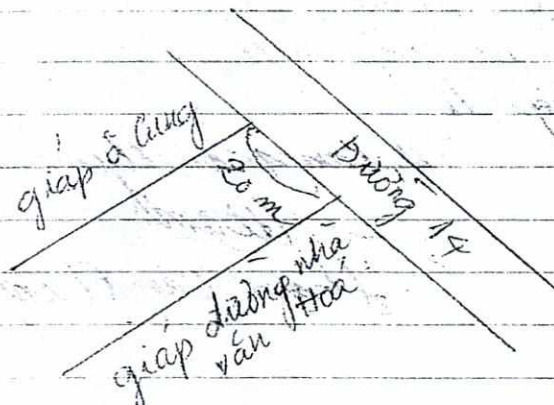 giáp ô Cung
20 m
Đường 14
giáp đường nhà
văn Hoá